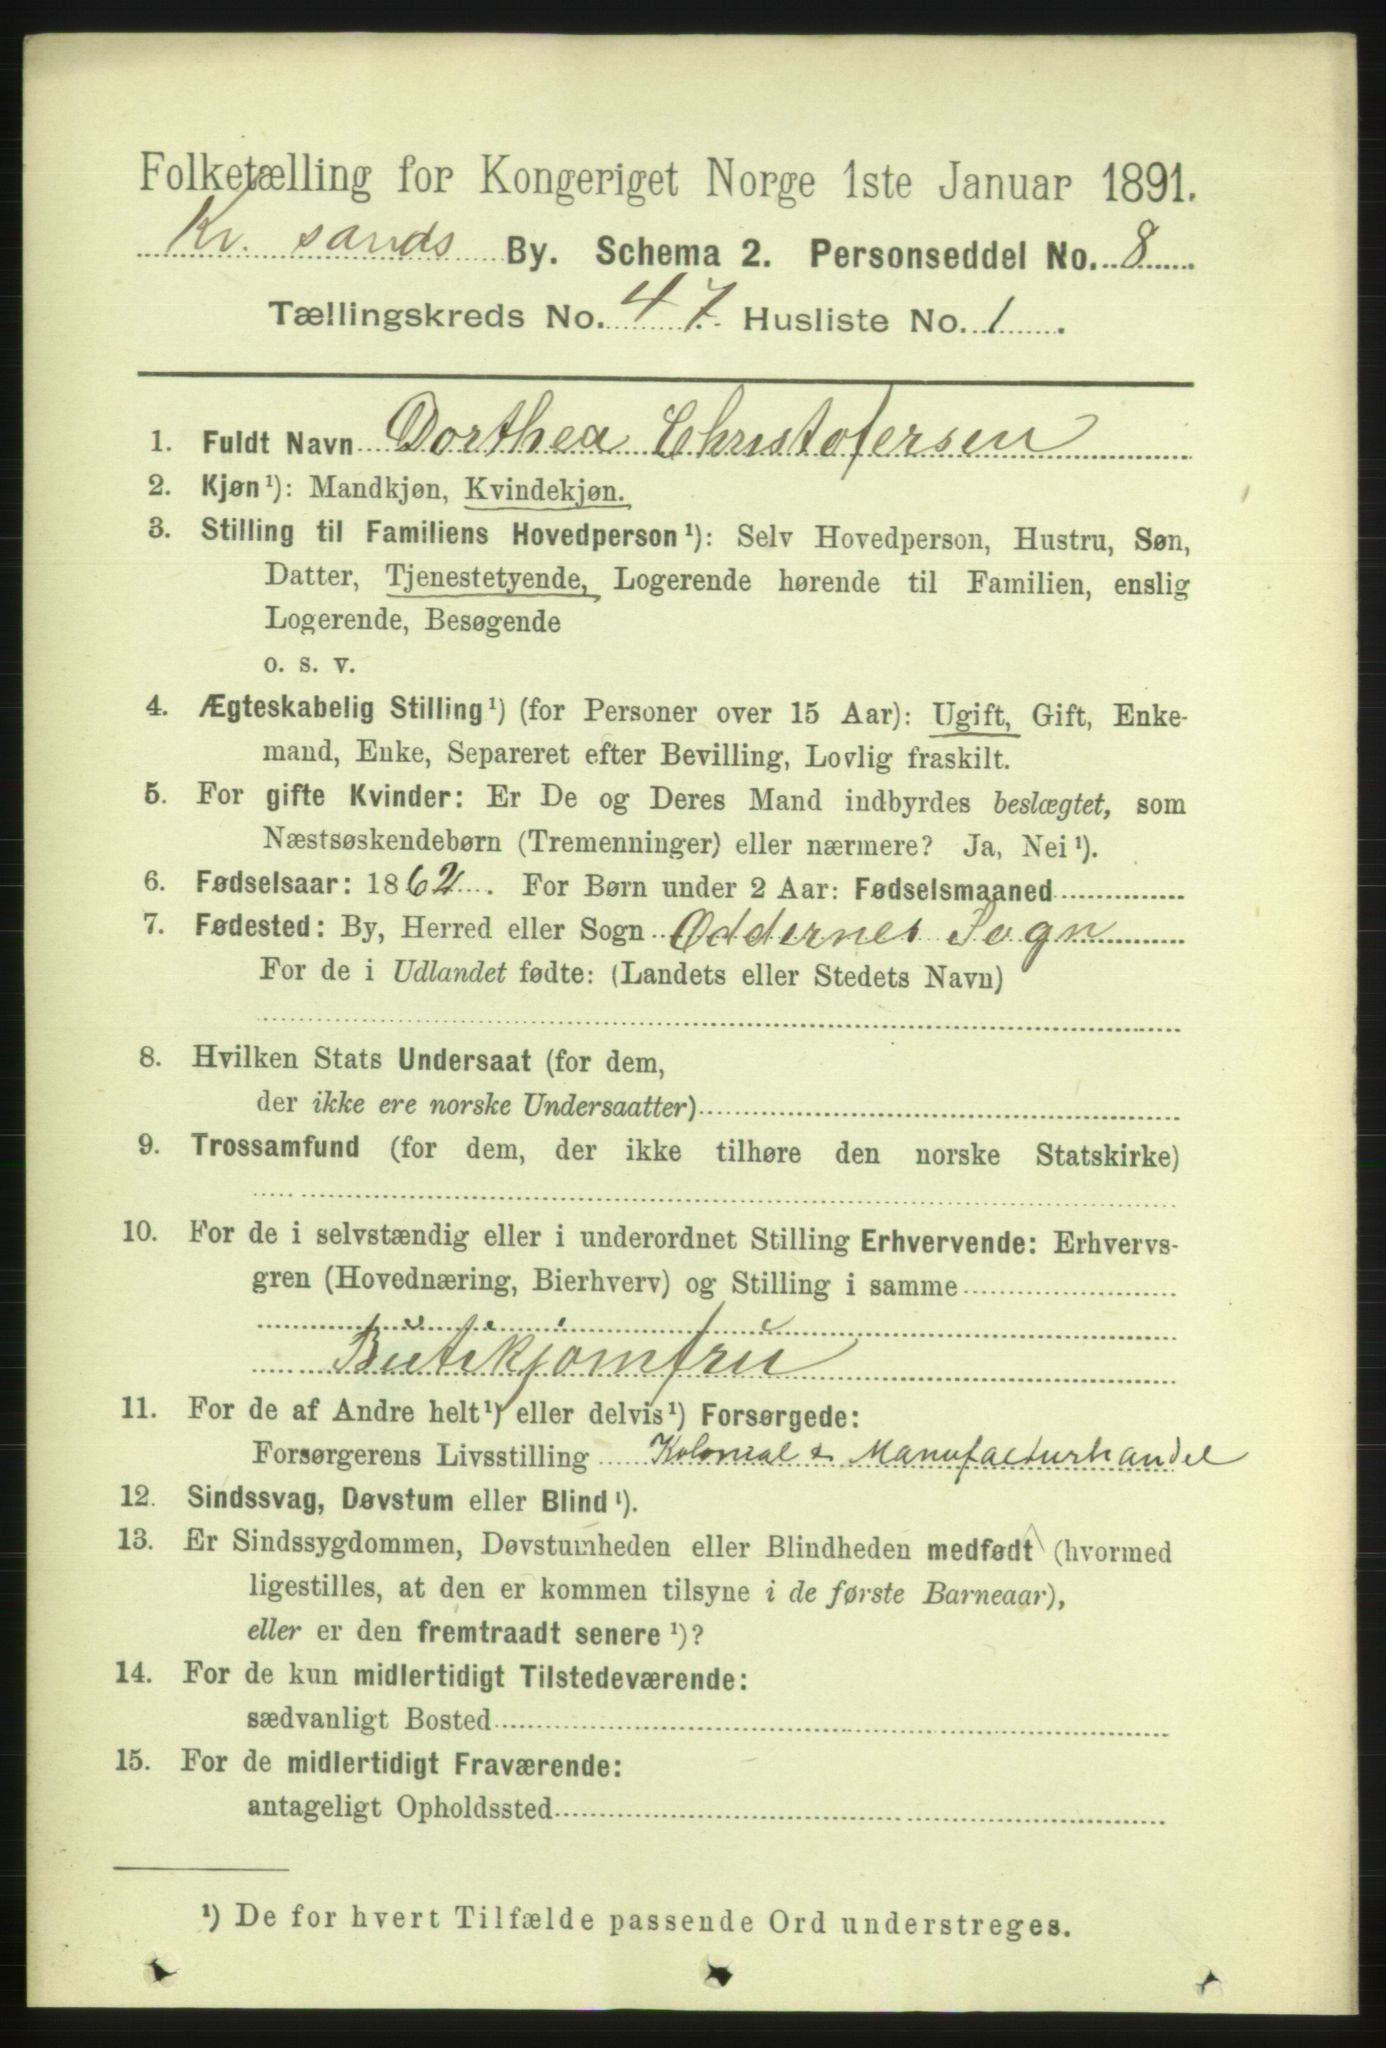 Folketælling for Kongeriget Norge 1ste Januar 1891.
Kr. sands By. Schema 2. Personseddel No. 8
Tællingskreds No. 47. Husliste No. 1.
1. Fuldt Navn Dorthea Christofersen
2. Kjøn¹): Mandkjøn, Kvindekjøn.
3. Stilling til Familiens Hovedperson¹): Selv Hovedperson, Hustru, Søn,
Datter, Tjenestetyende, Logerende hørende til Familien, enslig
Logerende, Besøgende
o. s. v.
4. Ægteskabelig Stilling¹) (for Personer over 15 Aar): Ugift, Gift, Enke-
mand, Enke, Separeret efter Bevilling, Lovlig fraskilt.
5. For gifte Kvinder: Er De og Deres Mand indbyrdes beslægtet, som
Næstsøskendebørn (Tremenninger) eller nærmere? Ja, Nei¹).
6. Fødselsaar: 1862. For Børn under 2 Aar: Fødselsmaaned
7. Fødested: By, Herred eller Sogn Oddernes Sogn
For de i Udlandet fødte: (Landets eller Stedets Navn)
8. Hvilken Stats Undersaat (for dem,
der ikke ere norske Undersaatter)
9. Trossamfund (for dem, der ikke tilhøre den norske Statskirke)
10. For de i selvstændig eller i underordnet Stilling Erhvervende: Erhvervs-
gren (Hovednæring, Bierhverv) og Stilling i samme
Butikjomfru
11. For de af Andre helt¹) eller delvis¹) Forsørgede:
Forsørgerens Livsstilling Kolonial & Manufacturhandel
12. Sindssvag, Døvstum eller Blind¹).
13. Er Sindssygdommen, Døvstumheden eller Blindheden medfødt (hvormed
ligestilles, at den er kommen tilsyne i de første Barneaar),
eller er den fremtraadt senere¹)?
14. For de kun midlertidigt Tilstedeværende:
sædvanligt Bosted
15. For de midlertidigt Fraværende:
antageligt Opholdssted
¹) De for hvert Tilfælde passende Ord understreges.